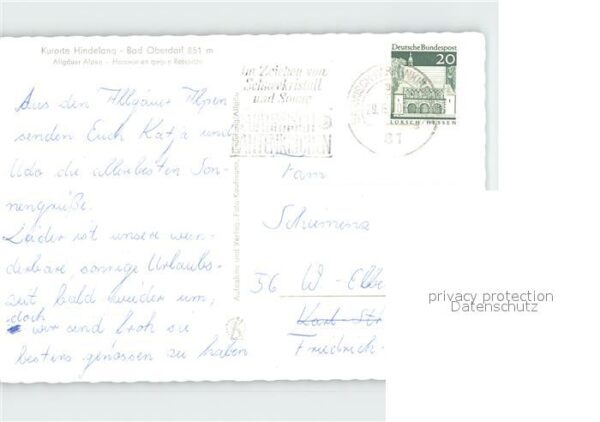 Kurorte Hindelang - Bad Oberdorf 851 m
Allgäuer Alpen -
Aus den Allgäuer Alpen
senden Euch Katja und
Udo die allerbesten Son-
nengrüße.
Leider ist unsere wun-
derbare sonnige Urlaubs-
zeit bald wieder um,
doch
wir sind froh sie
bestens genossen zu haben
Im Zeichen von
Schneekristall
und Sonne
Deutsche Bundespost
20
LORSCH/HESSEN
Aufnahme und Verlag: Foto
Fam
Schimena
56 W-Elbe
Karl-Str
Friedrich-
privacy protection
Datenschutz